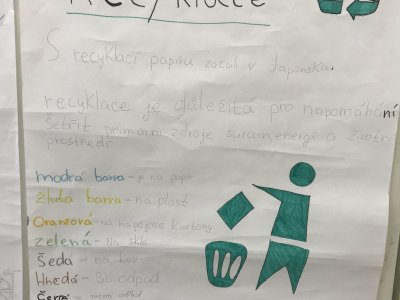 S recyklací papíru začali v Japonsku.
recyklace je důležitá pro napomáhání
šetřit primární zdroje surovin, energii a životní
prostředí
modrá barva - je na papír
žlutá barva - na plast
Oranžová - na nápojové kartony
zelená - Na sklo
šedá - na kov
Hnědá - Bio odpad
Černá -